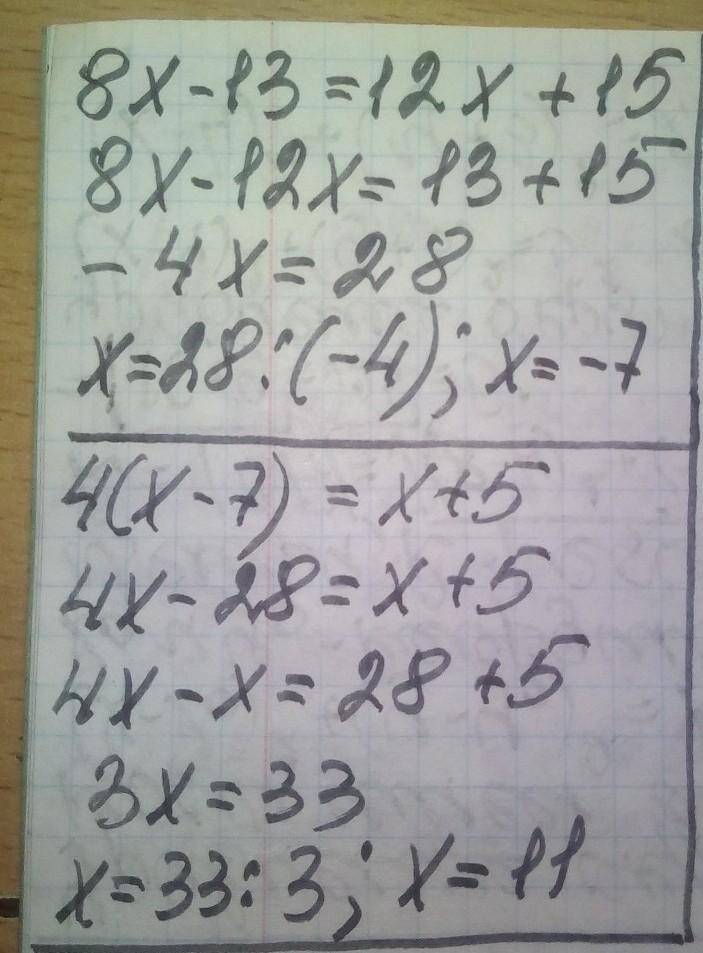 8x-13=12x+15
8x-12x=13+15
-4x=28
x=28:(-4); x=-7
4(x-7)=x+5
4x-28=x+5
4x-x=28+5
3x=33
x=33:3; x=11